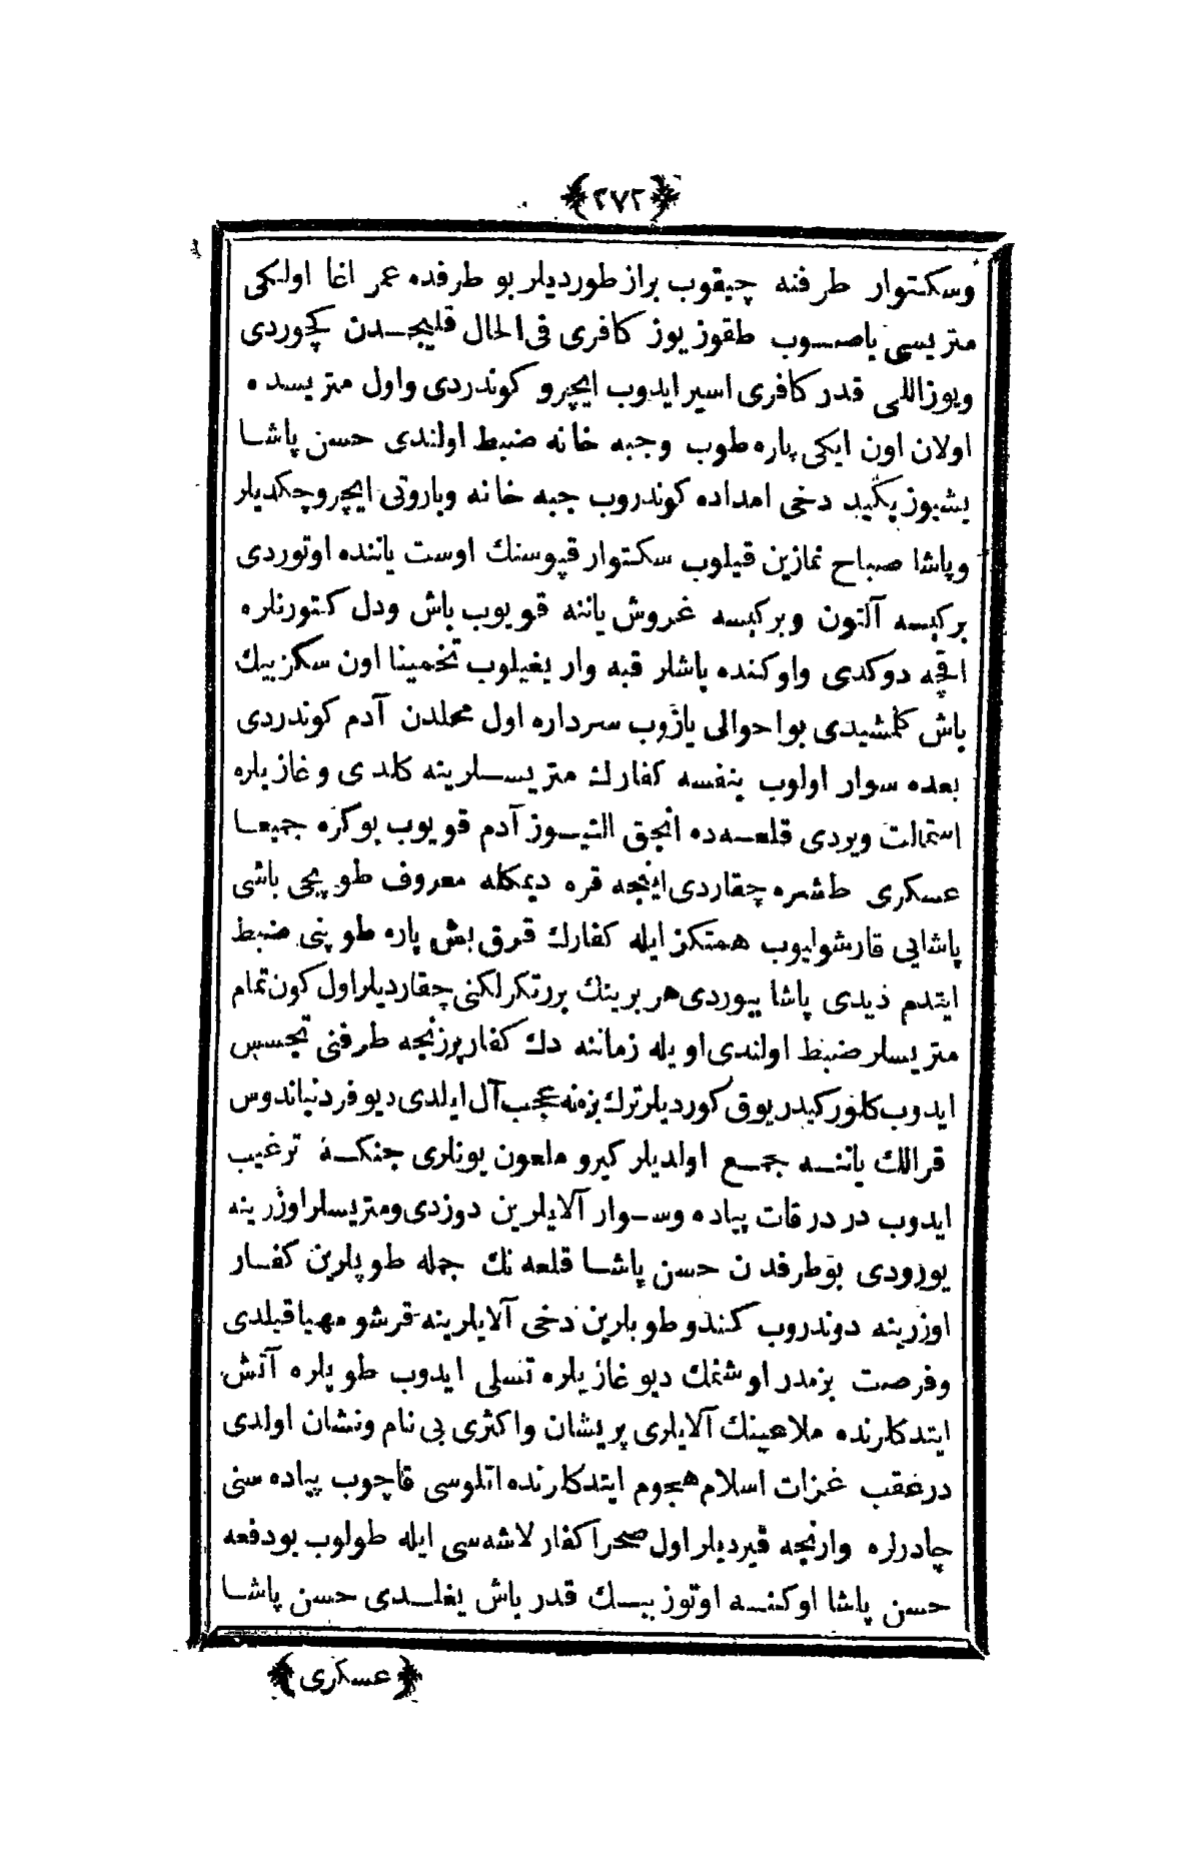 ﴿٢٧٢﴾
وسكتوار طرفنه چيقوب براز طورديلر بو طرفده عمر اغا اولكى
متريسى باصوب طقوز يوز كافرى فى الحال قليجدن كچوردى
ويوز اللى قدر كافرى اسير ايدوب ايچرو كوندردى واول متريسده
اولان اون ايكى پاره طوب وجبه خانه ضبط اولندى حسن پاشا
بشيوز يكيد دخى امداده كوندروب جبه خانه وباروتى ايچرو چكديلر
وپاشا صباح نمازين قيلوب سكتوار قپوسنك اوست ياننده اوتوردى
بر كيسه آلتون وبر كيسه غروش ياننه قويوب باش ودل كتورنلره
اقچه دوكدى واوكنده باشلر قبه وار يغيلوب تخمينا اون سكز بيك
باش كلمشيدى بو احوالى يازوب سرداره اول محلدن آدم كوندردى
بعده سوار اولوب بنفسه كفارك متريسلرينه كلدى و غازيلره
استمالت ويردى قلعه‌ده انجق التيوز آدم قويوب بو كره جميعا
عسكرى طشره چقاردى اينجه قره ديمكله معروف طوپجى باشى
پاشايى قارشوليوب همتكز ايله كفارك قرق بش پاره طوپنى ضبط
ايتدم ديدى پاشا بيوردى هر برينك برر تكرلكنى چقارديلر اول كون تمام
متريسلر ضبط اولندى اويله زماننه دك كفار پرزنجه طرفنى تجسس
ايدوب كلور كيدر يوق كورديلر ترك بزه نه عجب آل ايلدى ديو فردنياندوس
قرالك ياننه جمع اولديلر كيرو ملعون بونلرى جنكه ترغيب
ايدوب در در قات پياده وسوار آلايلرين دوزدى ومتريسلر اوزرينه
يورودى بو طرفدن حسن پاشا قلعه نك جمله طوپلرين كفار
اوزرينه دوندروب كندو طوپلرين دخى آلايلرينه قرشو مهيا قيلدى
وفرصت بزمدر اوشنمك ديو غازيلره تسلى ايدوب طوپلره آتش
ايتدكلرنده ملاعينك آلايلرى پريشان واكثرى بى نام ونشان اولدى
در عقب غزات اسلام هجوم ايتدكلرنده اتلوسى قاچوب پياده سنى
چادرلره وارنجه قيرديلر اول صحرا كفار لاشه سى ايله طولوب بو دفعه
حسن پاشا اوكنه اوتوز بيك قدر باش يغلدى حسن پاشا
﴿عسكرى﴾